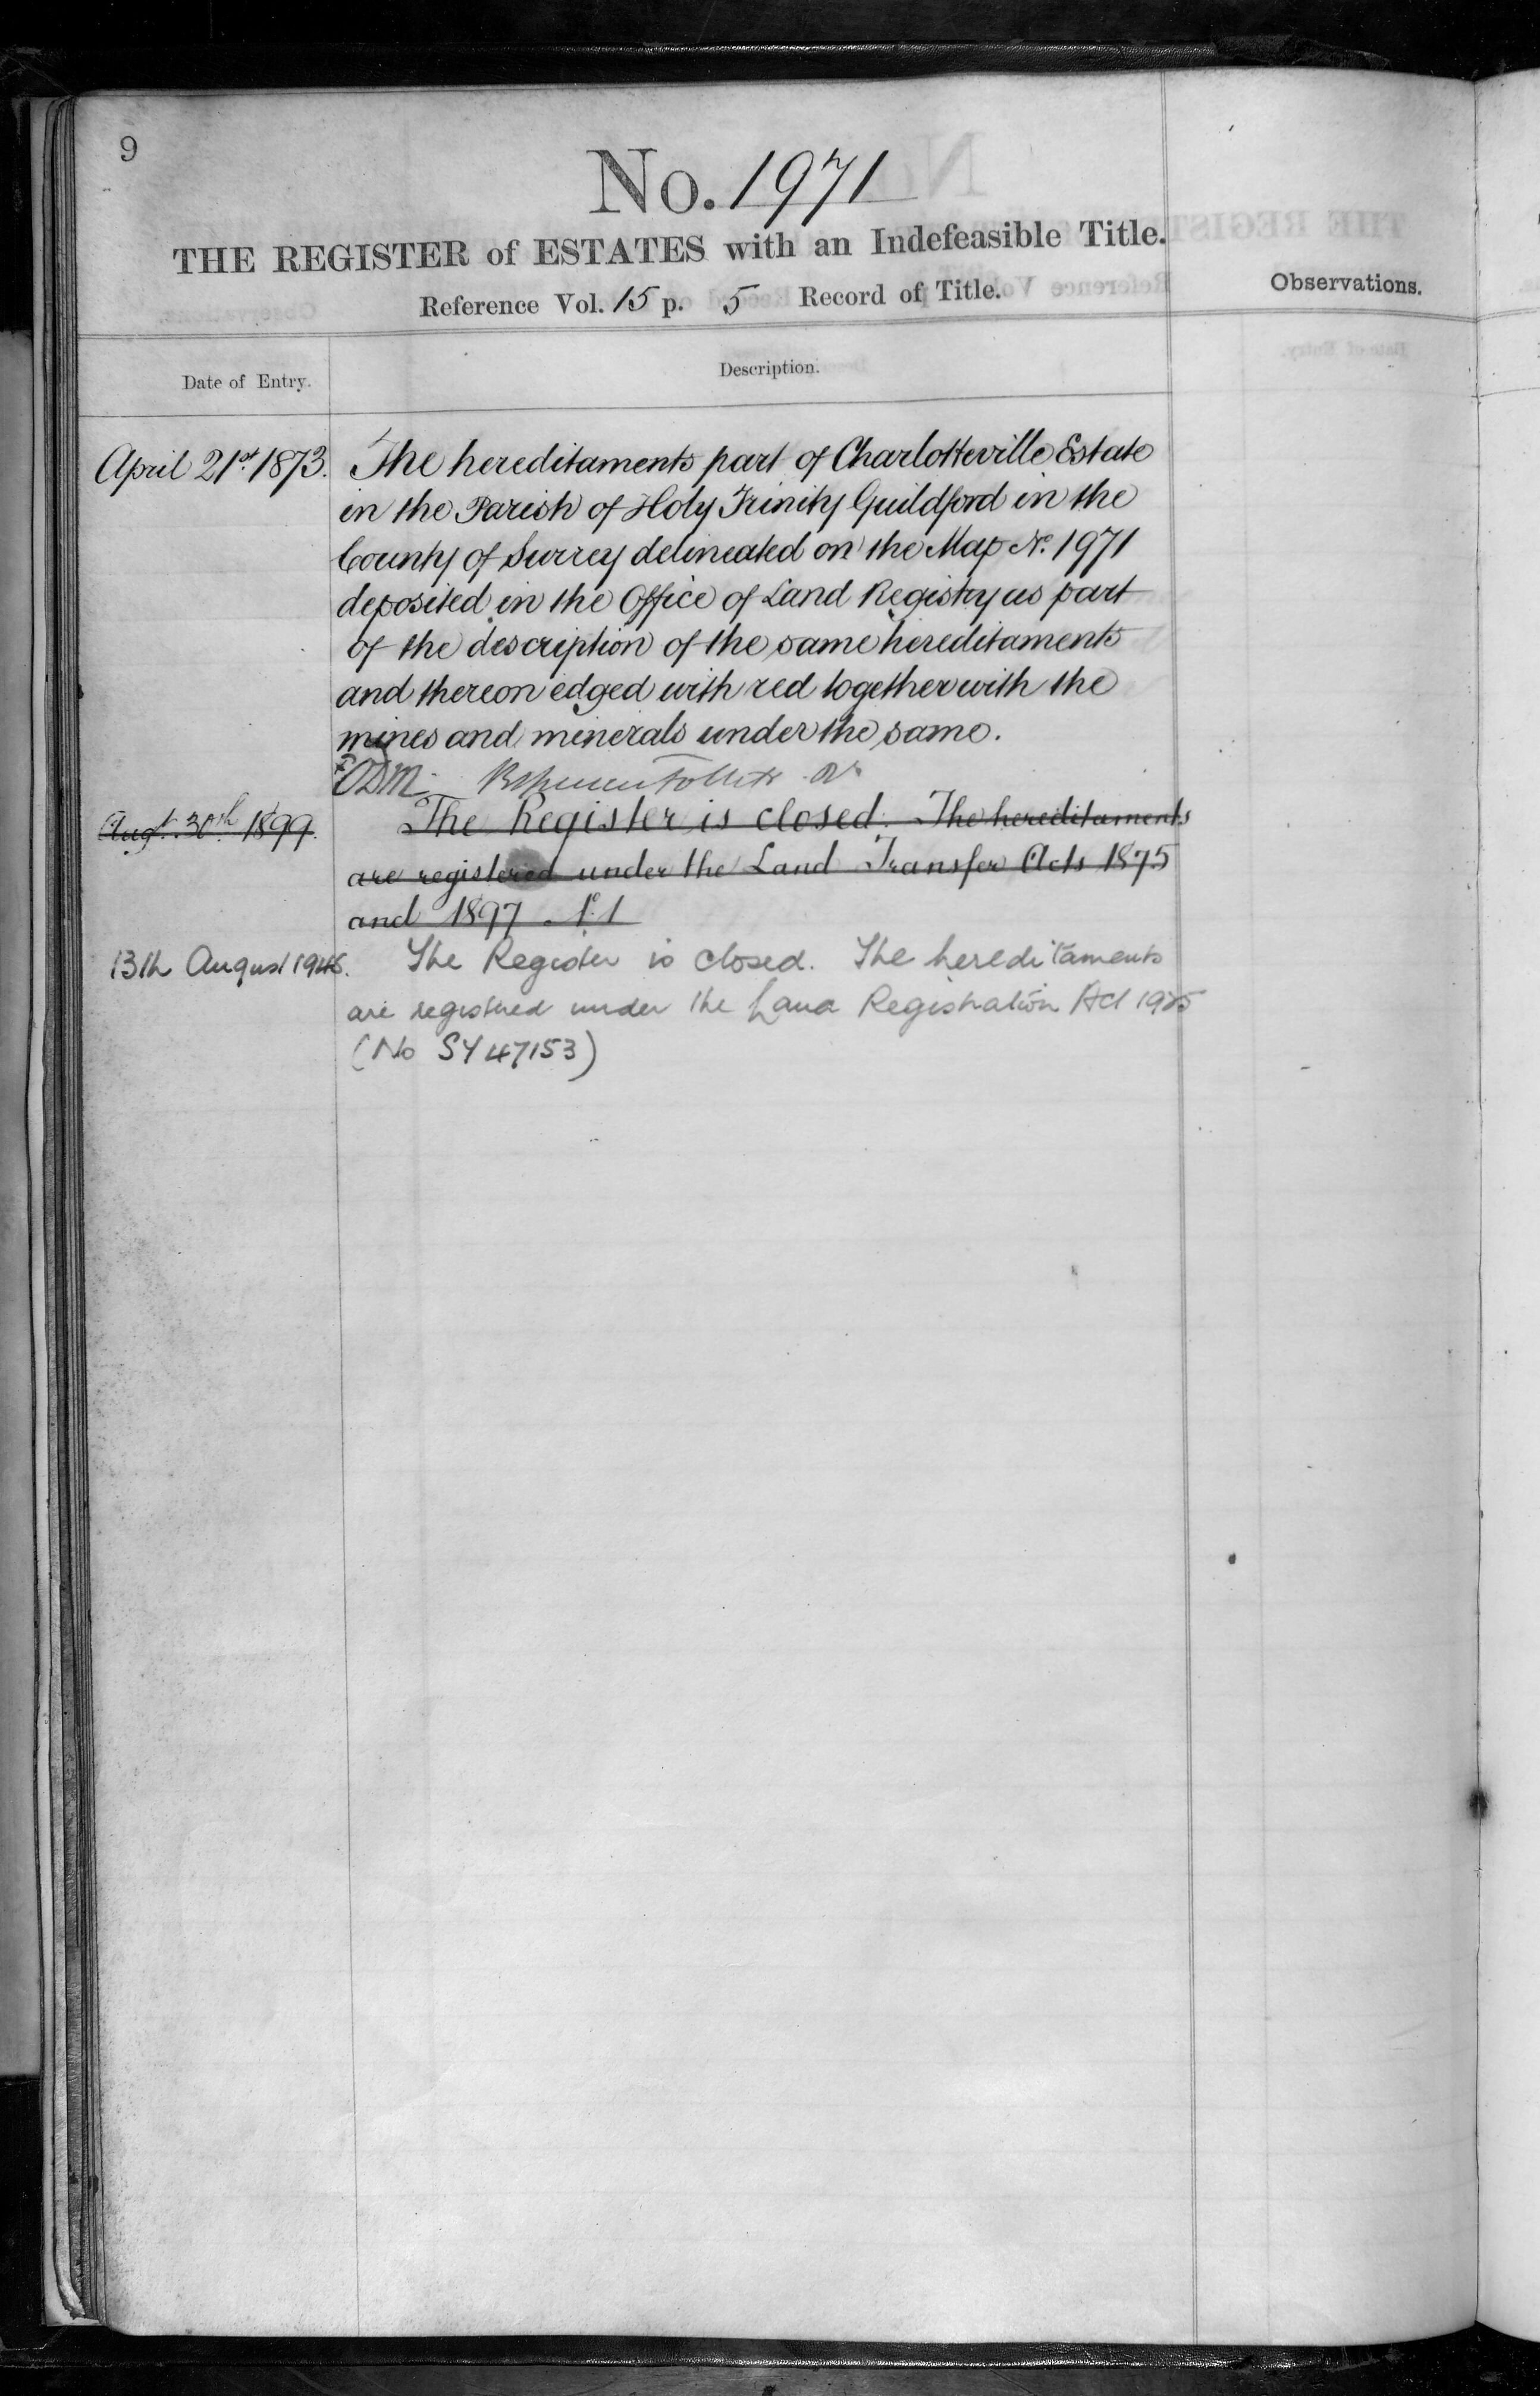 9
No. 1971
THE REGISTER of ESTATES with an Indefeasible Title.
Reference Vol. 15 p. 5 Record of Title.
Observations.
Date of Entry.
Description.
April 21st 1873. The hereditaments part of Charlotteville Estate
in the Parish of Holy Trinity Guildford in the
County of Surrey delineated on the Map No. 1971
deposited in the Office of Land Registry as part
of the description of the same hereditaments
and thereon edged with red together with the
mines and minerals under the same.
Augt. 30th 1899. The Register is closed. The hereditaments
are registered under the Land Transfer Acts 1875
and 1897
13th August 1948. The Register is closed. The hereditaments
are registered under the Land Registration Act 1925
(No SY 47153)